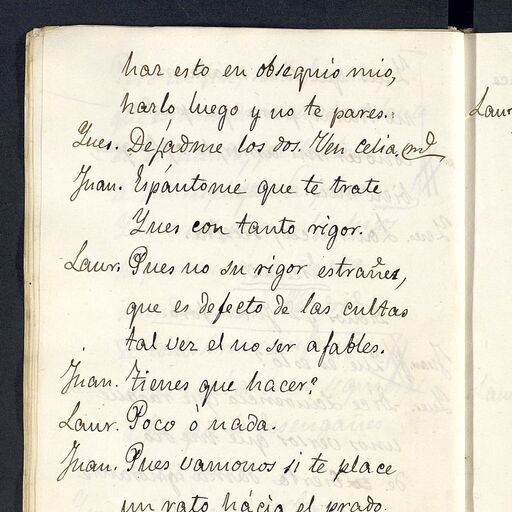 haz esto en obsequio mio,
hazlo, luego y no te pares.
Ynes. Dejádme los dos. Ven celia,
Juan. Espántome que te trate
Ynes con tanto rigor.
Laur. Pues no su rigor estrañes,
que es defecto de las cultas
tal vez el no ser afables.
Juan. Tienes que hacer?
Laur. Poco ò nada.
Juan. Pues vamonos si te place
un rato hácia el prado.
Laur